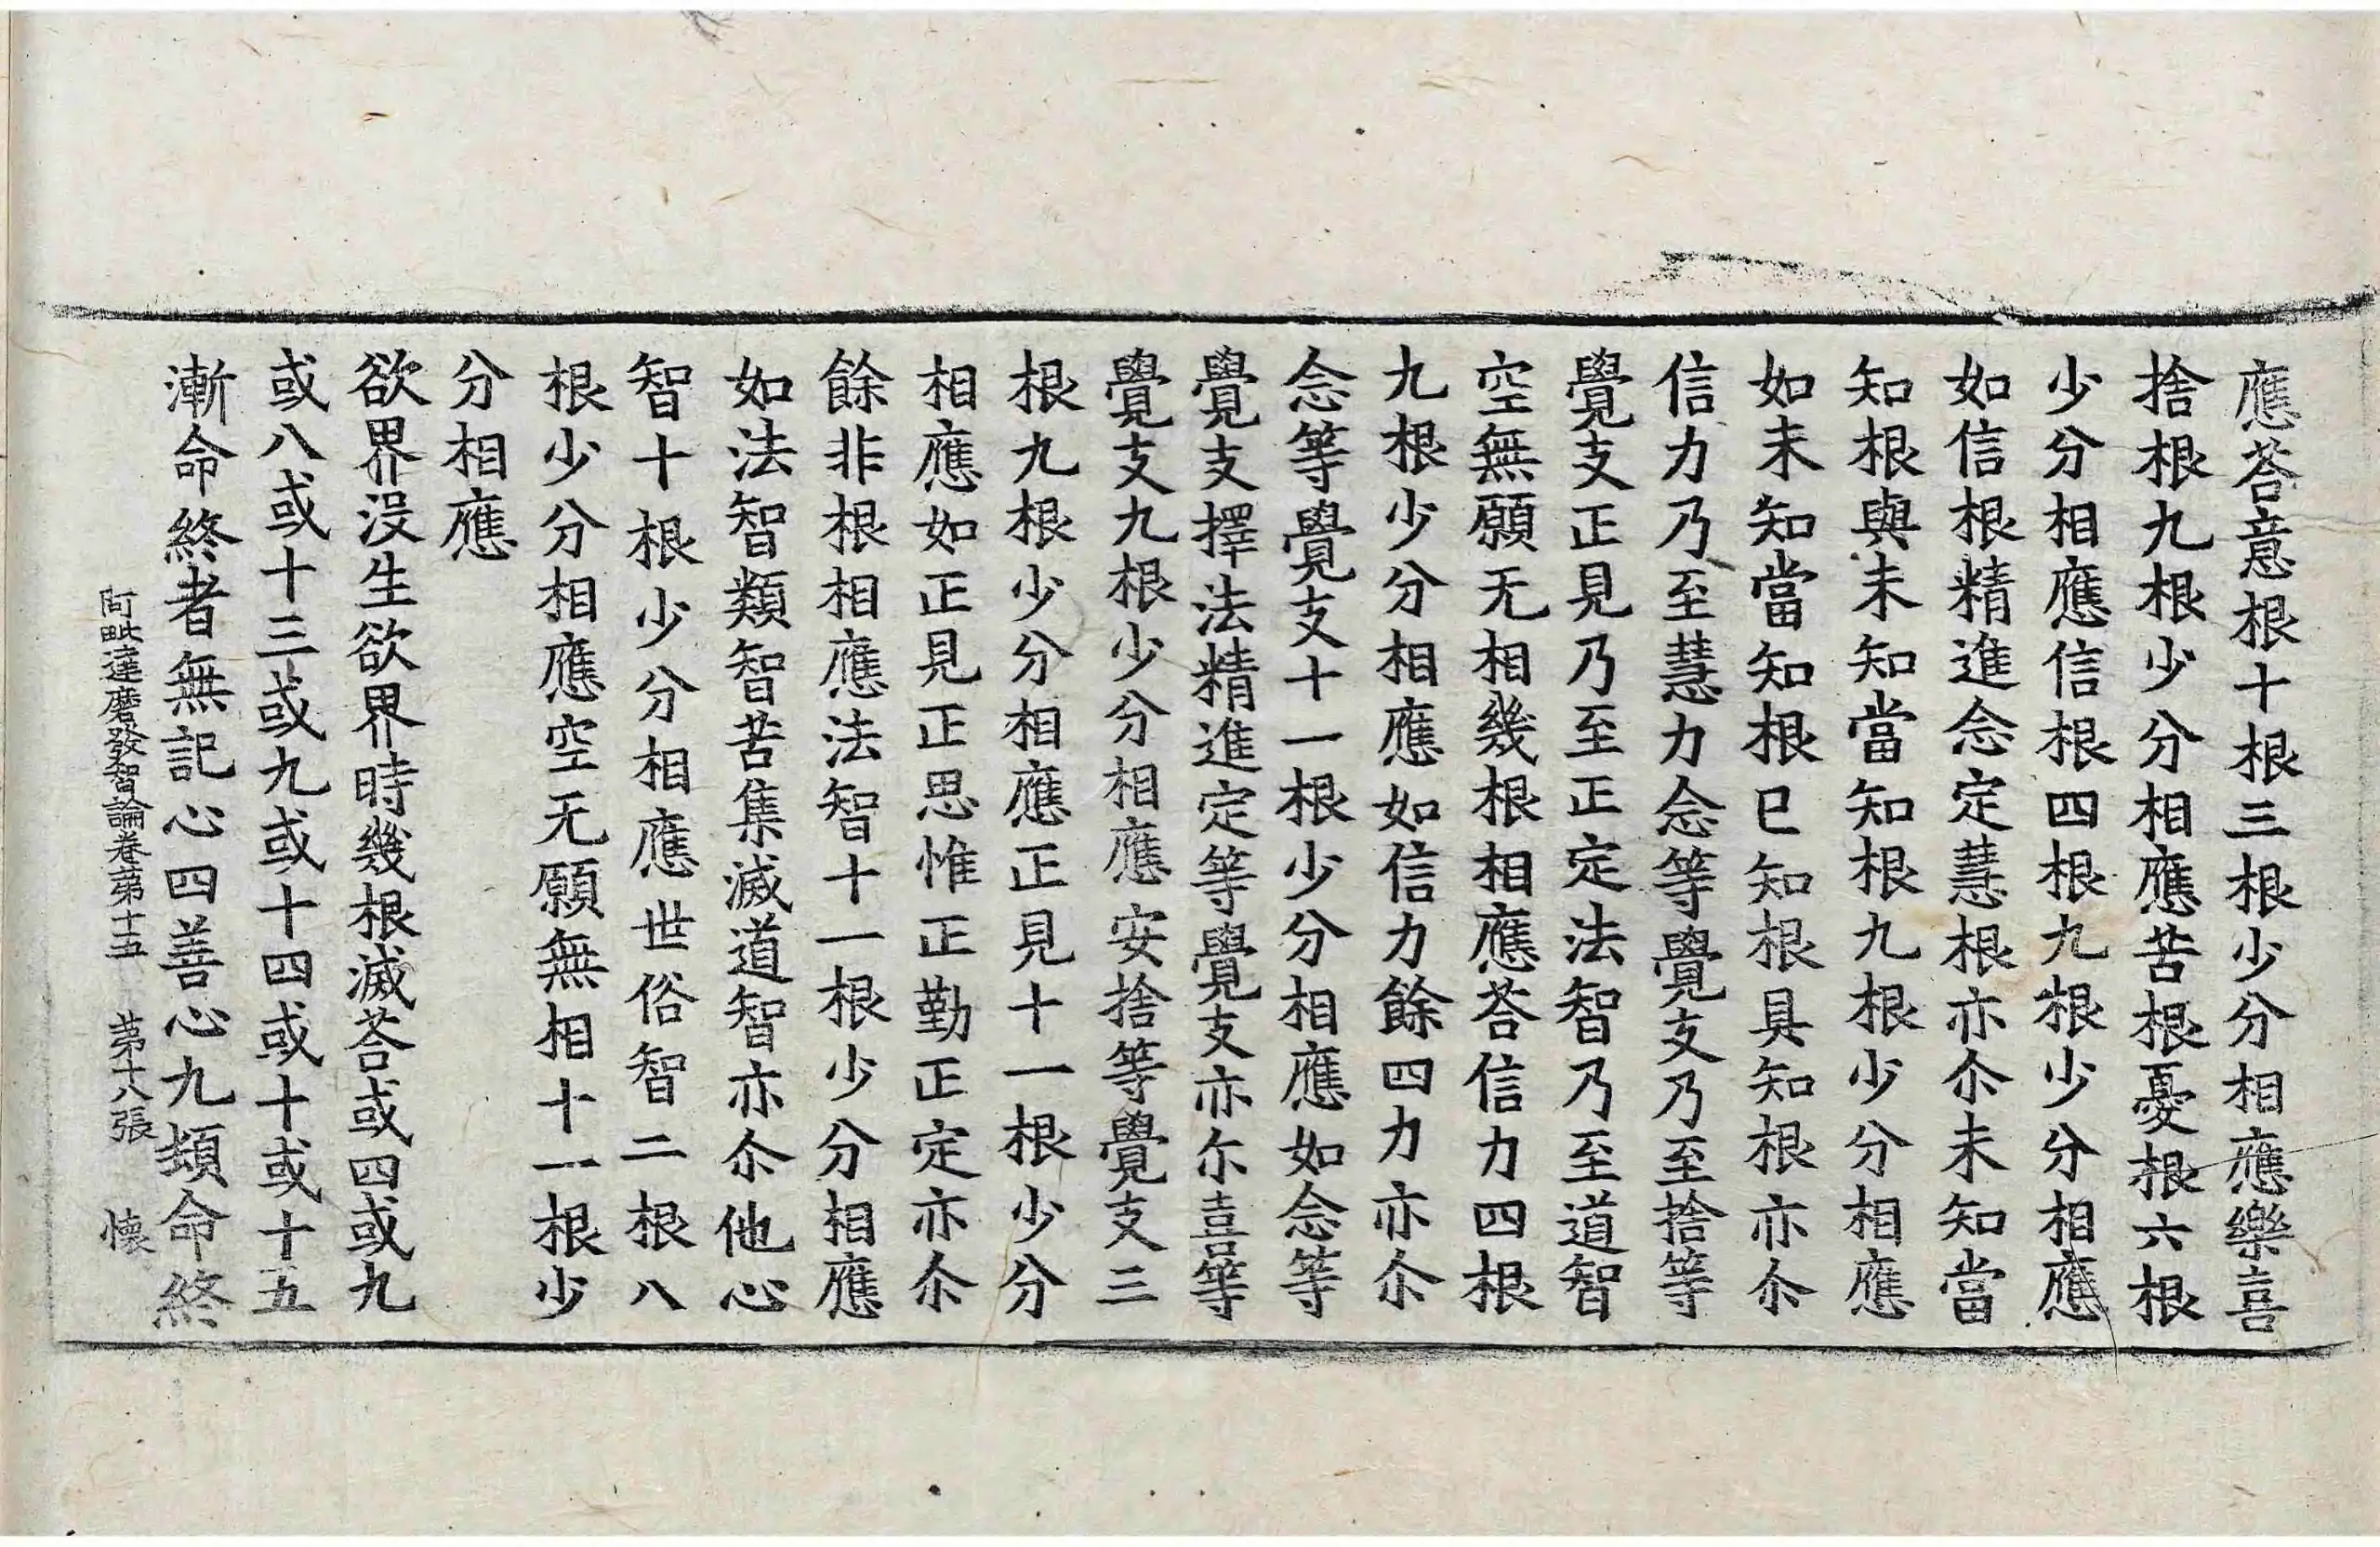 應荅意根十根三根少分相應樂喜
捨根九根少分相應苦根憂根六根
少分相應信根四根九根少分相應
如信根精進念定慧根亦尒未知當
知根與未知當知根九根少分相應
如未知當知根已知根具知根亦尒
信力乃至慧力念等覺支乃至捨等
覺支正見乃至正定法智乃至道智
空無願无相幾根相應荅信力四根
九根少分相應如信力餘四力亦尒
念等覺支十一根少分相應如念等
覺支擇法精進定等覺支亦尒喜等
覺支九根少分相應安捨等覺支三
根九根少分相應正見十一根少分
相應如正見正思惟正勤正定亦尒
餘非根相應法智十一根少分相應
如法智類智苦集滅道智亦尒他心
智十根少分相應世俗智二根八
根少分相應空无願無相十一根少
分相應
欲界沒生欲界時幾根滅荅或四或九
或八或十三或九或十四或十或十五
漸命終者無記心四善心九頓命終
阿毗達磨發智論卷第十五 第十八張 懐